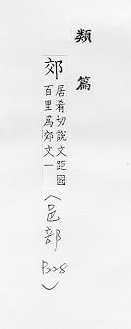 類篇
郊
居肴切說文距國
百里爲郊文一
(邑部 P228)